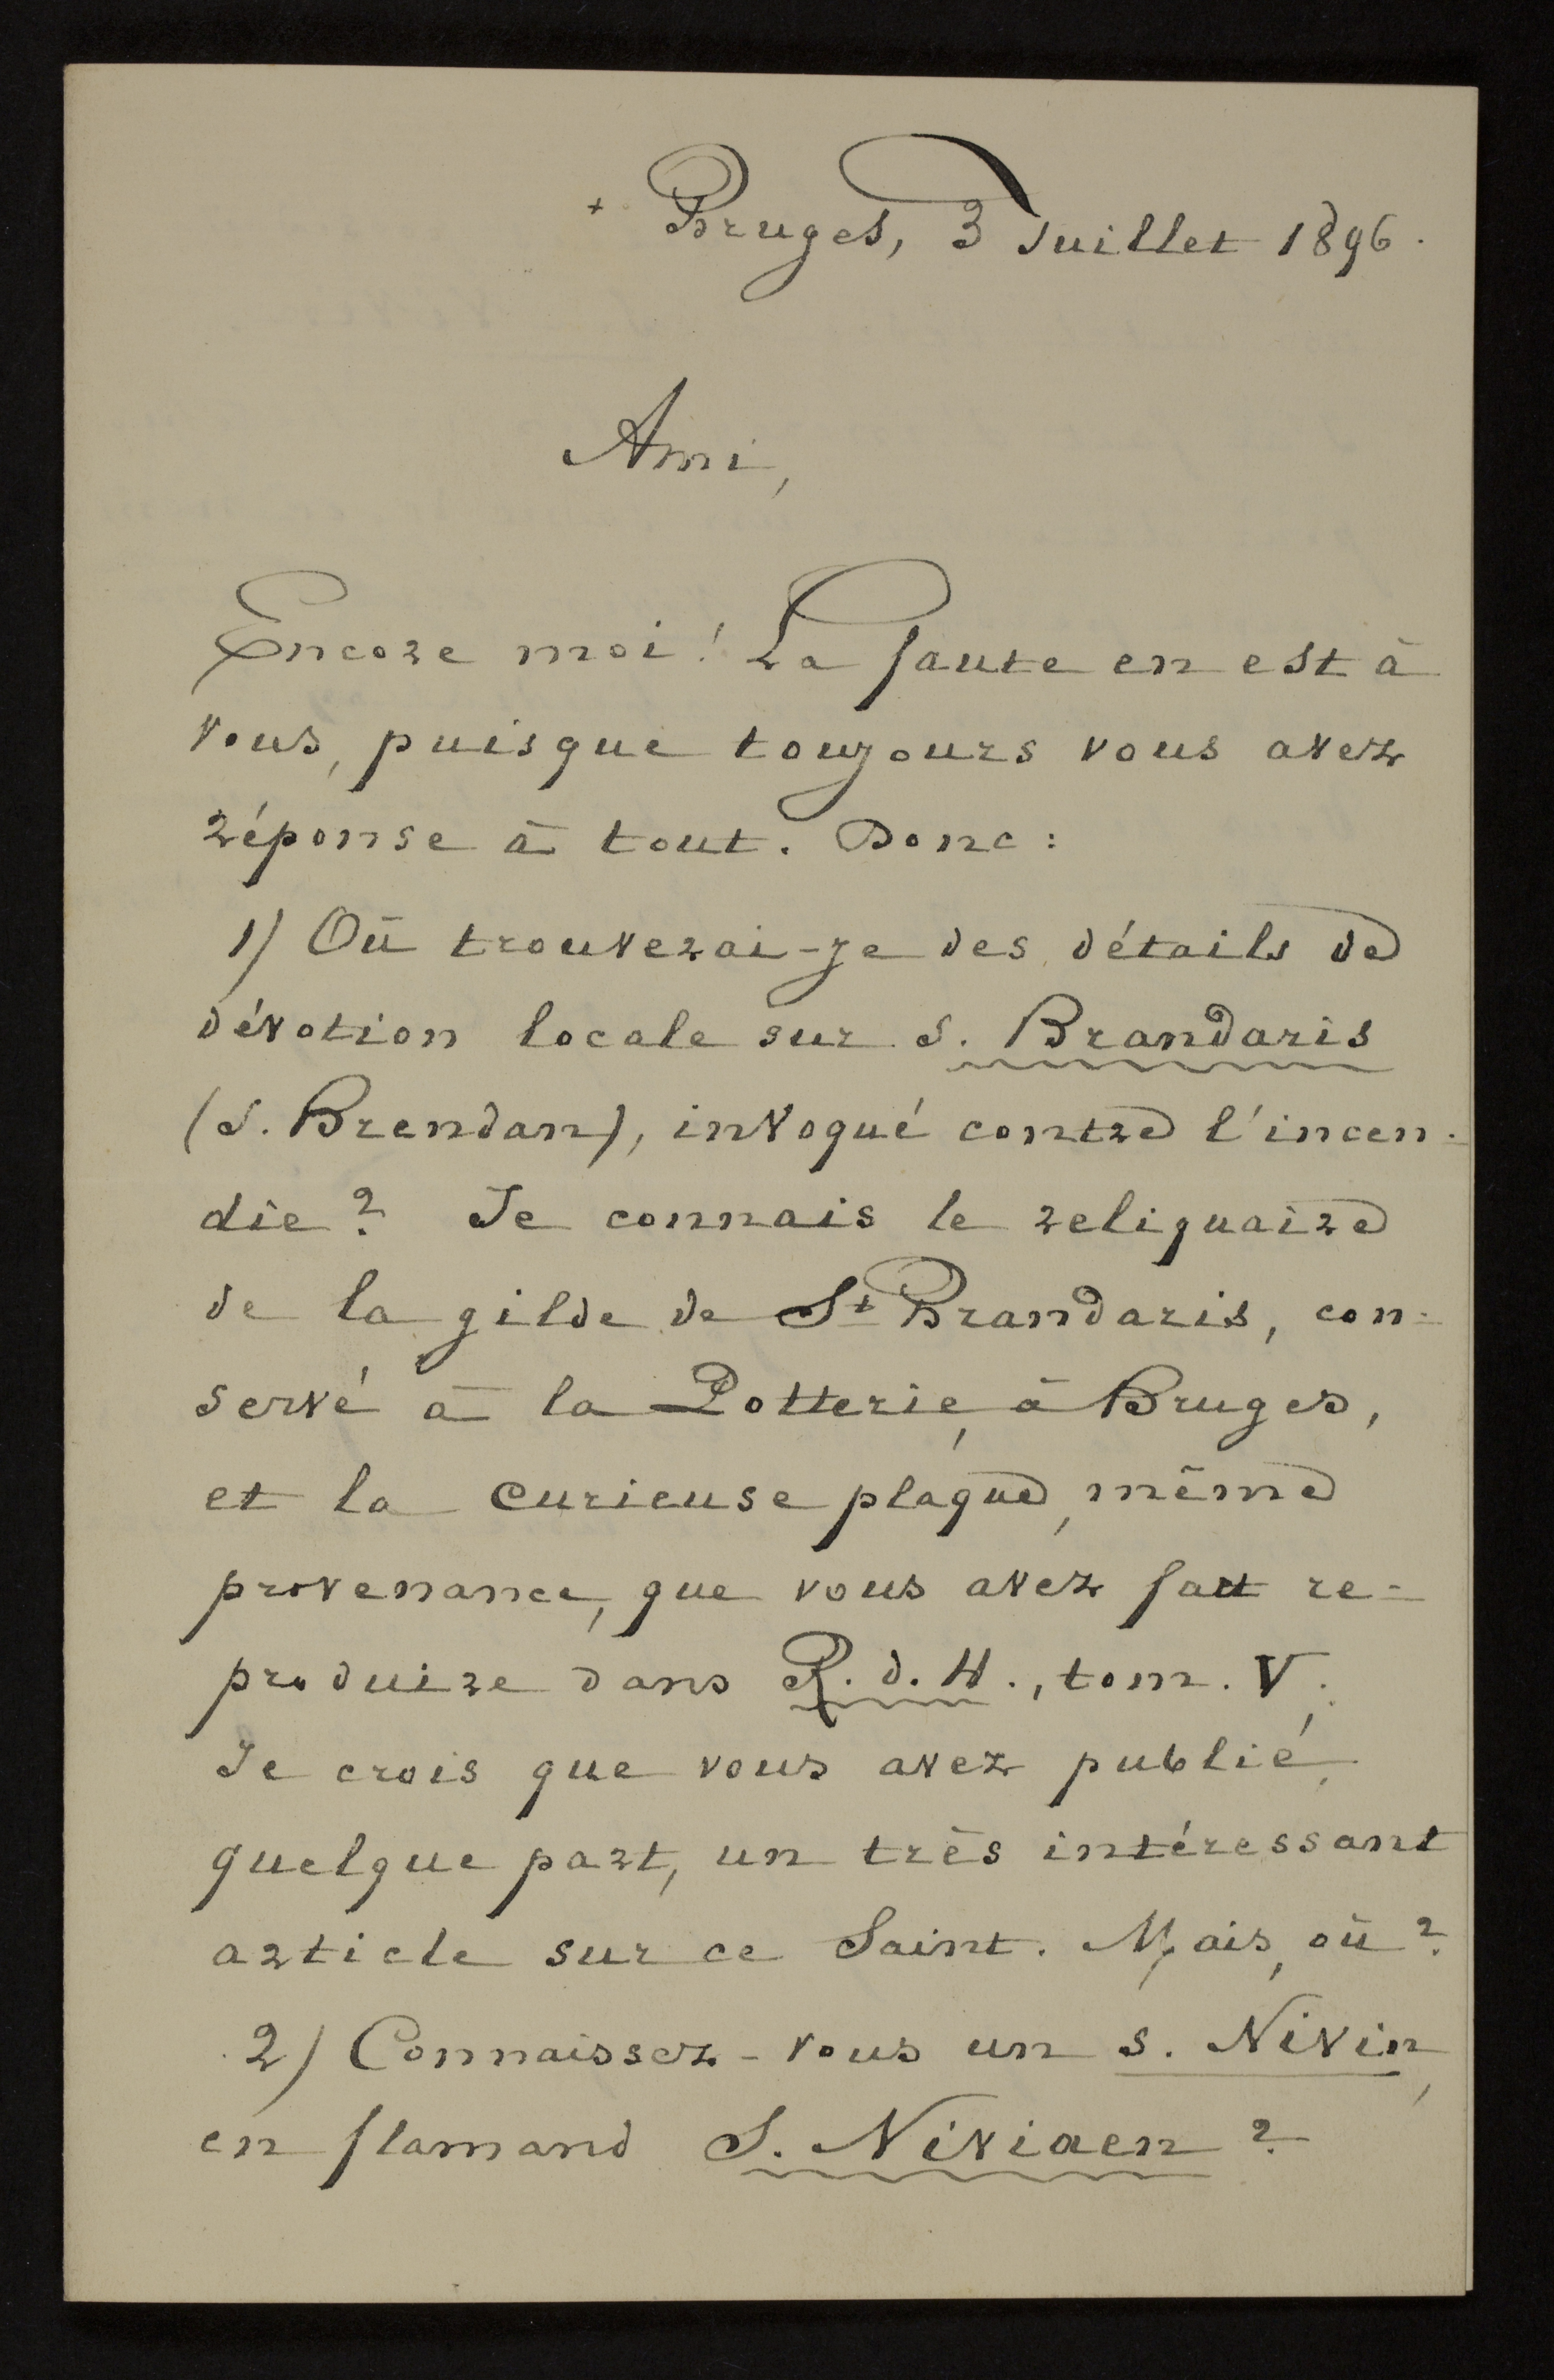 + Bruges, 3 Juillet 1896.
Ami,
Encore moi! La faute en est à
vous, puisque toujours vous avez
réponse à tout. Donc:
1) Où trouverai-je des détails de
dévotion locale sur S. Brandaris
(S. Brendan), invoqué contre l'incen-
die? Je connais le reliquaire
de la gilde de St Brandaris, con-
servé à la Potterie, à Bruges,
et la curieuse plaque, même
provenance, que vous avez fait re-
produire dans R. d. H., tom. V.
Je crois que vous avez publié,
quelque part, un très intéressant
article sur ce Saint. Mais, où?
2) Connaissez-vous un S. Nivin,
en flamand S. Niviaen?